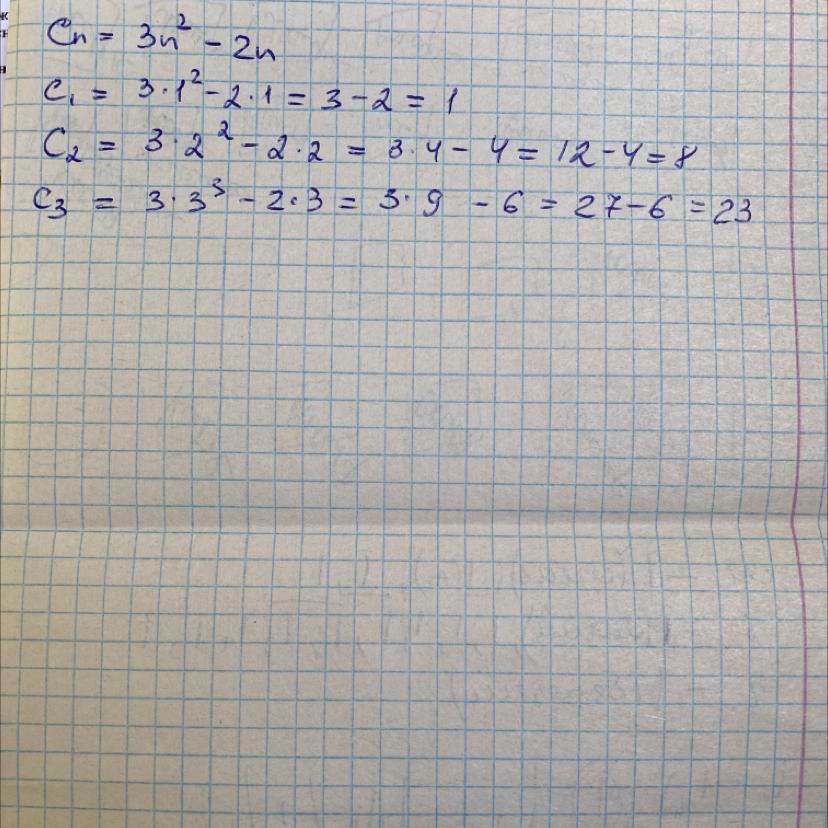 Cn = 3n² - 2n
C₁ = 3·1² - 2·1 = 3 - 2 = 1
C₂ = 3·2² - 2·2 = 3·4 - 4 = 12 - 4 = 8
C₃ = 3·3³ - 2·3 = 3·9 - 6 = 27 - 6 = 23